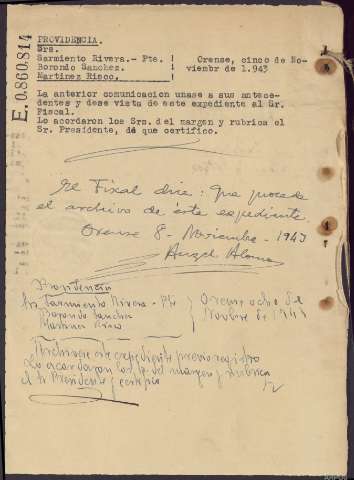 E.0.860.814
PROVIDENCIA.
Srs.
Sarmiento Rivera.- Pte.
Boromdo Sanchez.
Martinez Risco.
Orense, cinco de No-
viembr de 1.943
La anterior comunicacion unase a sus antece-
dentes y dese vista de este expediente al Sr.
Fiscal.
Lo acordaron los Srs. del margen y rubrica el
Sr. Presidente, de que certifico.
El Fiscal dice: Que procede
el archivo de éste expediente.
Orense 8 - Noviembre - 1943
Angel Alonso
Providencia
Sr. Sarmiento Rivera - Pte
Boromdo Sanchez
Martinez Risco
Orense ocho de
Novbre de 1943
Archivese este expediente previo registro
Lo acordaron los Sr. del margen y rubrica
el Sr Presidente y certifico